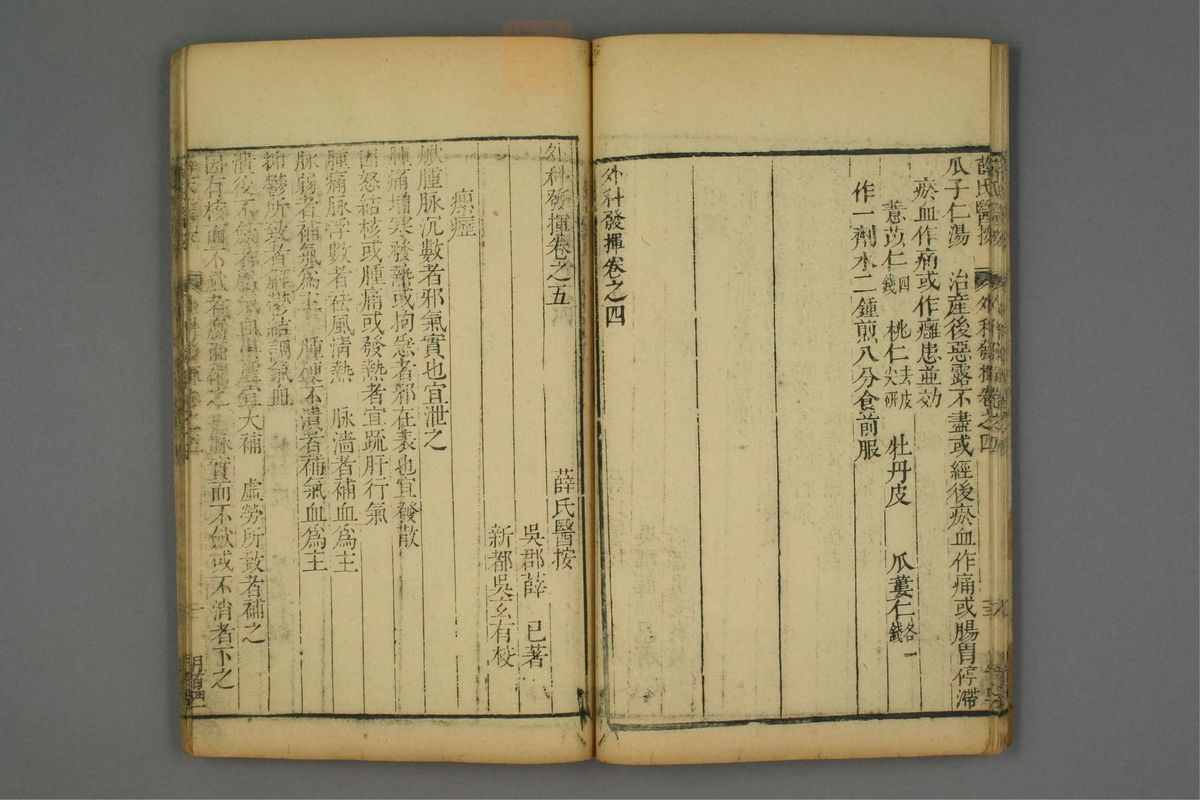 薛氏醫按 外科發揮卷之四
瓜子仁湯 治産後惡露不盡或經後瘀血作痛或腸胃停滯
瘀血作痛或作癰患並効
薏苡仁四錢 桃仁去皮尖研 牡丹皮 瓜蔞仁各一錢
作一劑水二鍾煎八分食前服
外科發揮卷之四
外科發揮卷之五 薛氏醫按
吳郡薛 已著
新都吳玄有校
瘰癧
焮腫脉沉數者邪氣實也宜泄之
腫痛增寒發熱或拘急者邪在表也宜發散
因怒結核或腫痛或發熱者宜疏肝行氣
腫痛脉浮數者祛風清熱 脉濇者補血爲主
脉弱者補氣爲主 腫硬不潰者補氣血爲主
抑鬱所致者解鬱結調氣血
潰後不斂者屬氣血俱虛宜大補 虛勞所致者補之
因有核而不斂者腐而補之 脉實而不斂或不消者下之